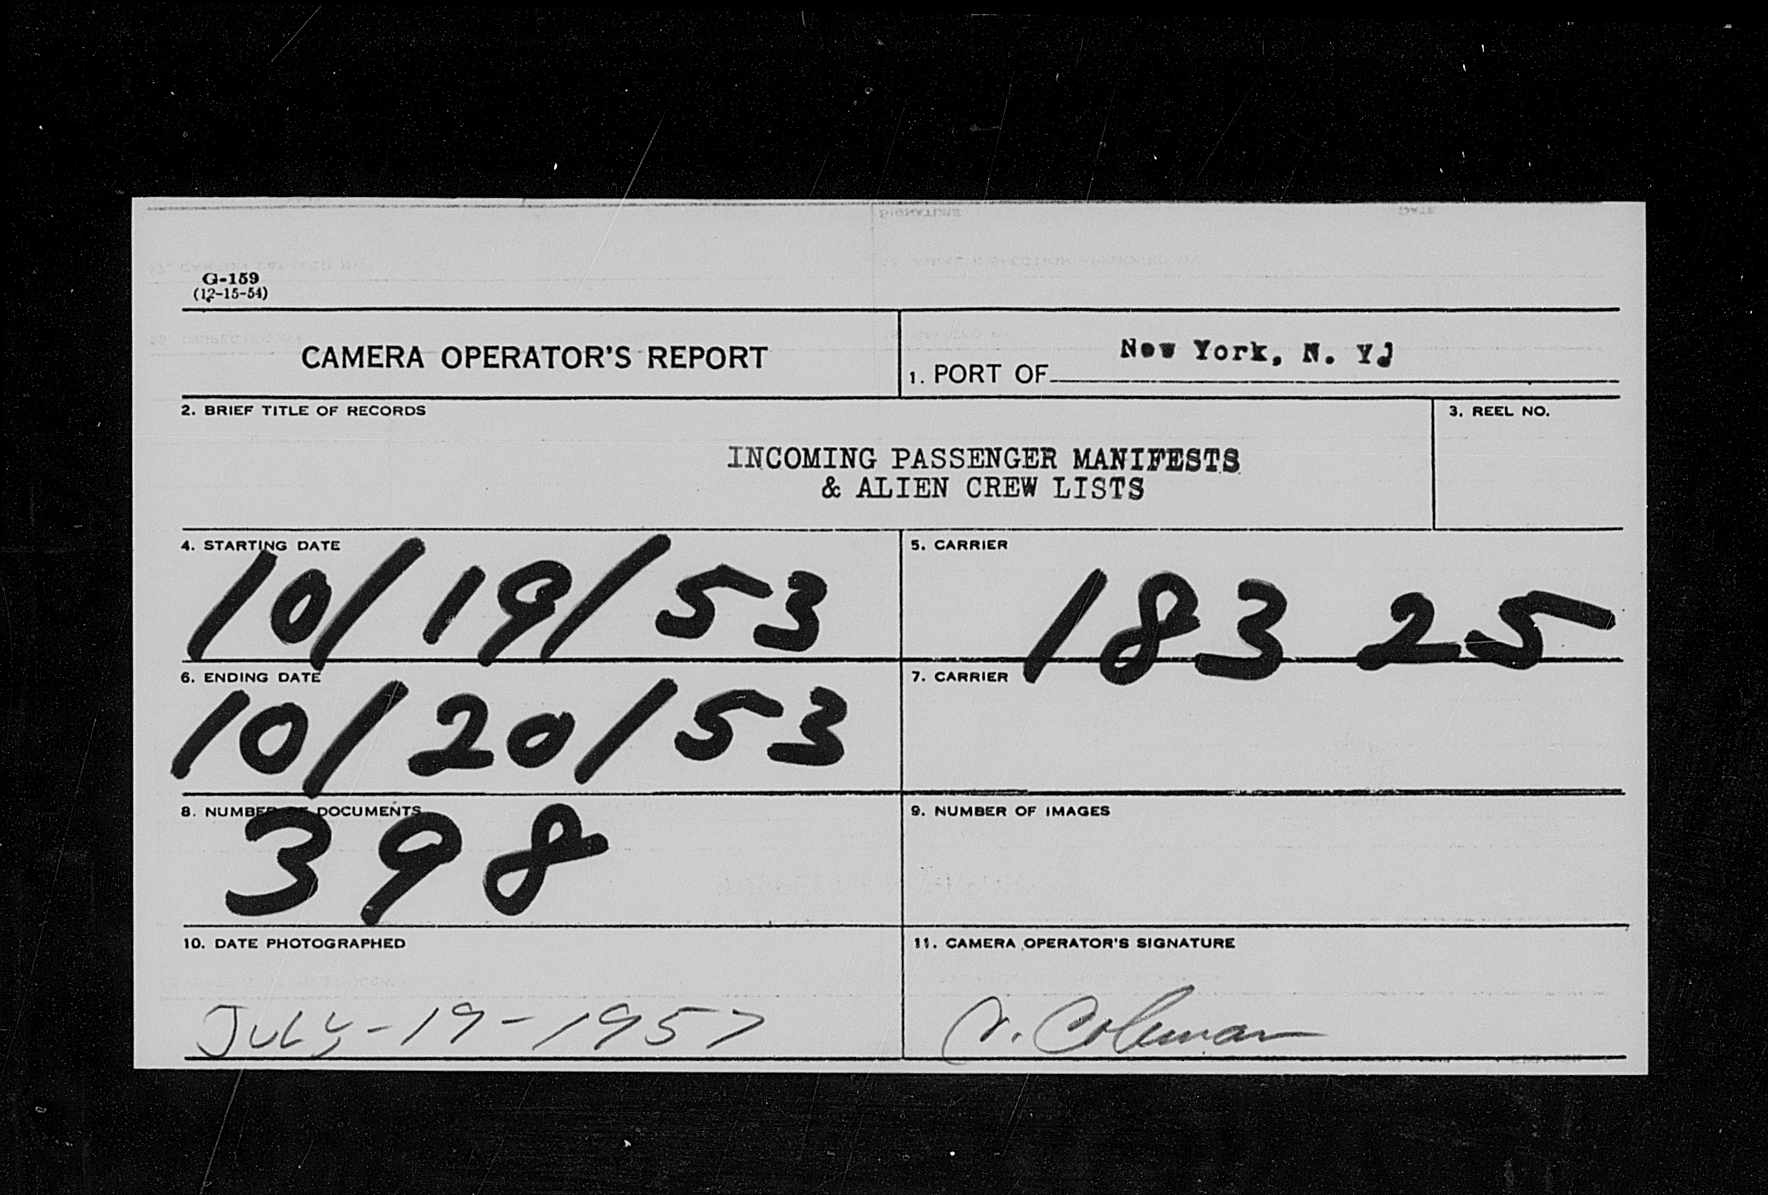 G-159
(12-15-54)
CAMERA OPERATOR'S REPORT
1. PORT OF New York, N. Y.
2. BRIEF TITLE OF RECORDS
3. REEL NO.
INCOMING PASSENGER MANIFESTS
& ALIEN CREW LISTS
4. STARTING DATE
10/19/53
5. CARRIER
183 25
6. ENDING DATE
10/20/53
7. CARRIER
8. NUMBER OF DOCUMENTS
398
9. NUMBER OF IMAGES
10. DATE PHOTOGRAPHED
July-19-1957
11. CAMERA OPERATOR'S SIGNATURE
Coleman